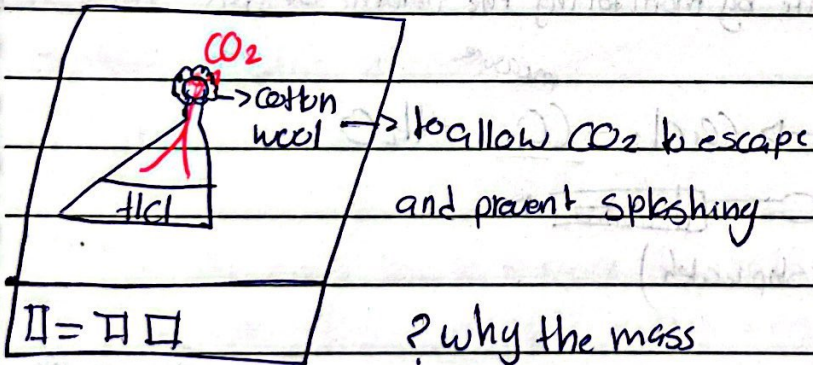 CO2
→ cotton
wool → to allow CO2 to escape
and prevent splashing
HCl
? why the mass